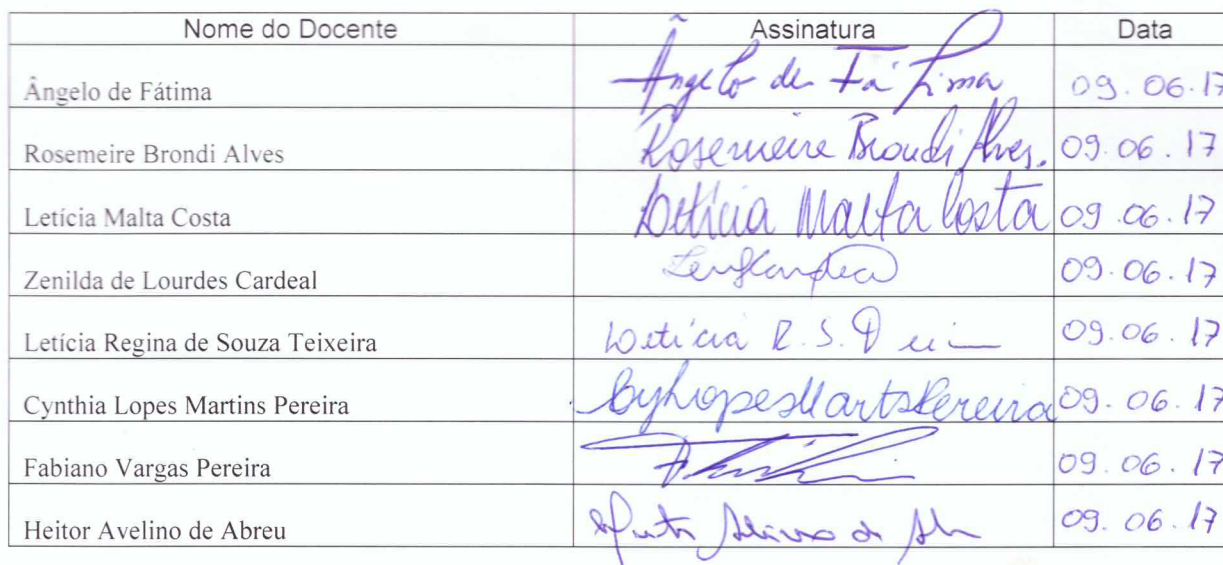 Nome do Docente Assinatura Data
Ângelo de Fátima Ângelo de Fátima 09.06.17
Rosemeire Brondi Alves Rosemeire Brondi Alves. 09.06.17
Letícia Malta Costa Letícia Malta Costa 09.06.17
Zenilda de Lourdes Cardeal 09.06.17
Letícia Regina de Souza Teixeira Letícia R. S. 09.06.17
Cynthia Lopes Martins Pereira 09.06.17
Fabiano Vargas Pereira 09.06.17
Heitor Avelino de Abreu 09.06.17